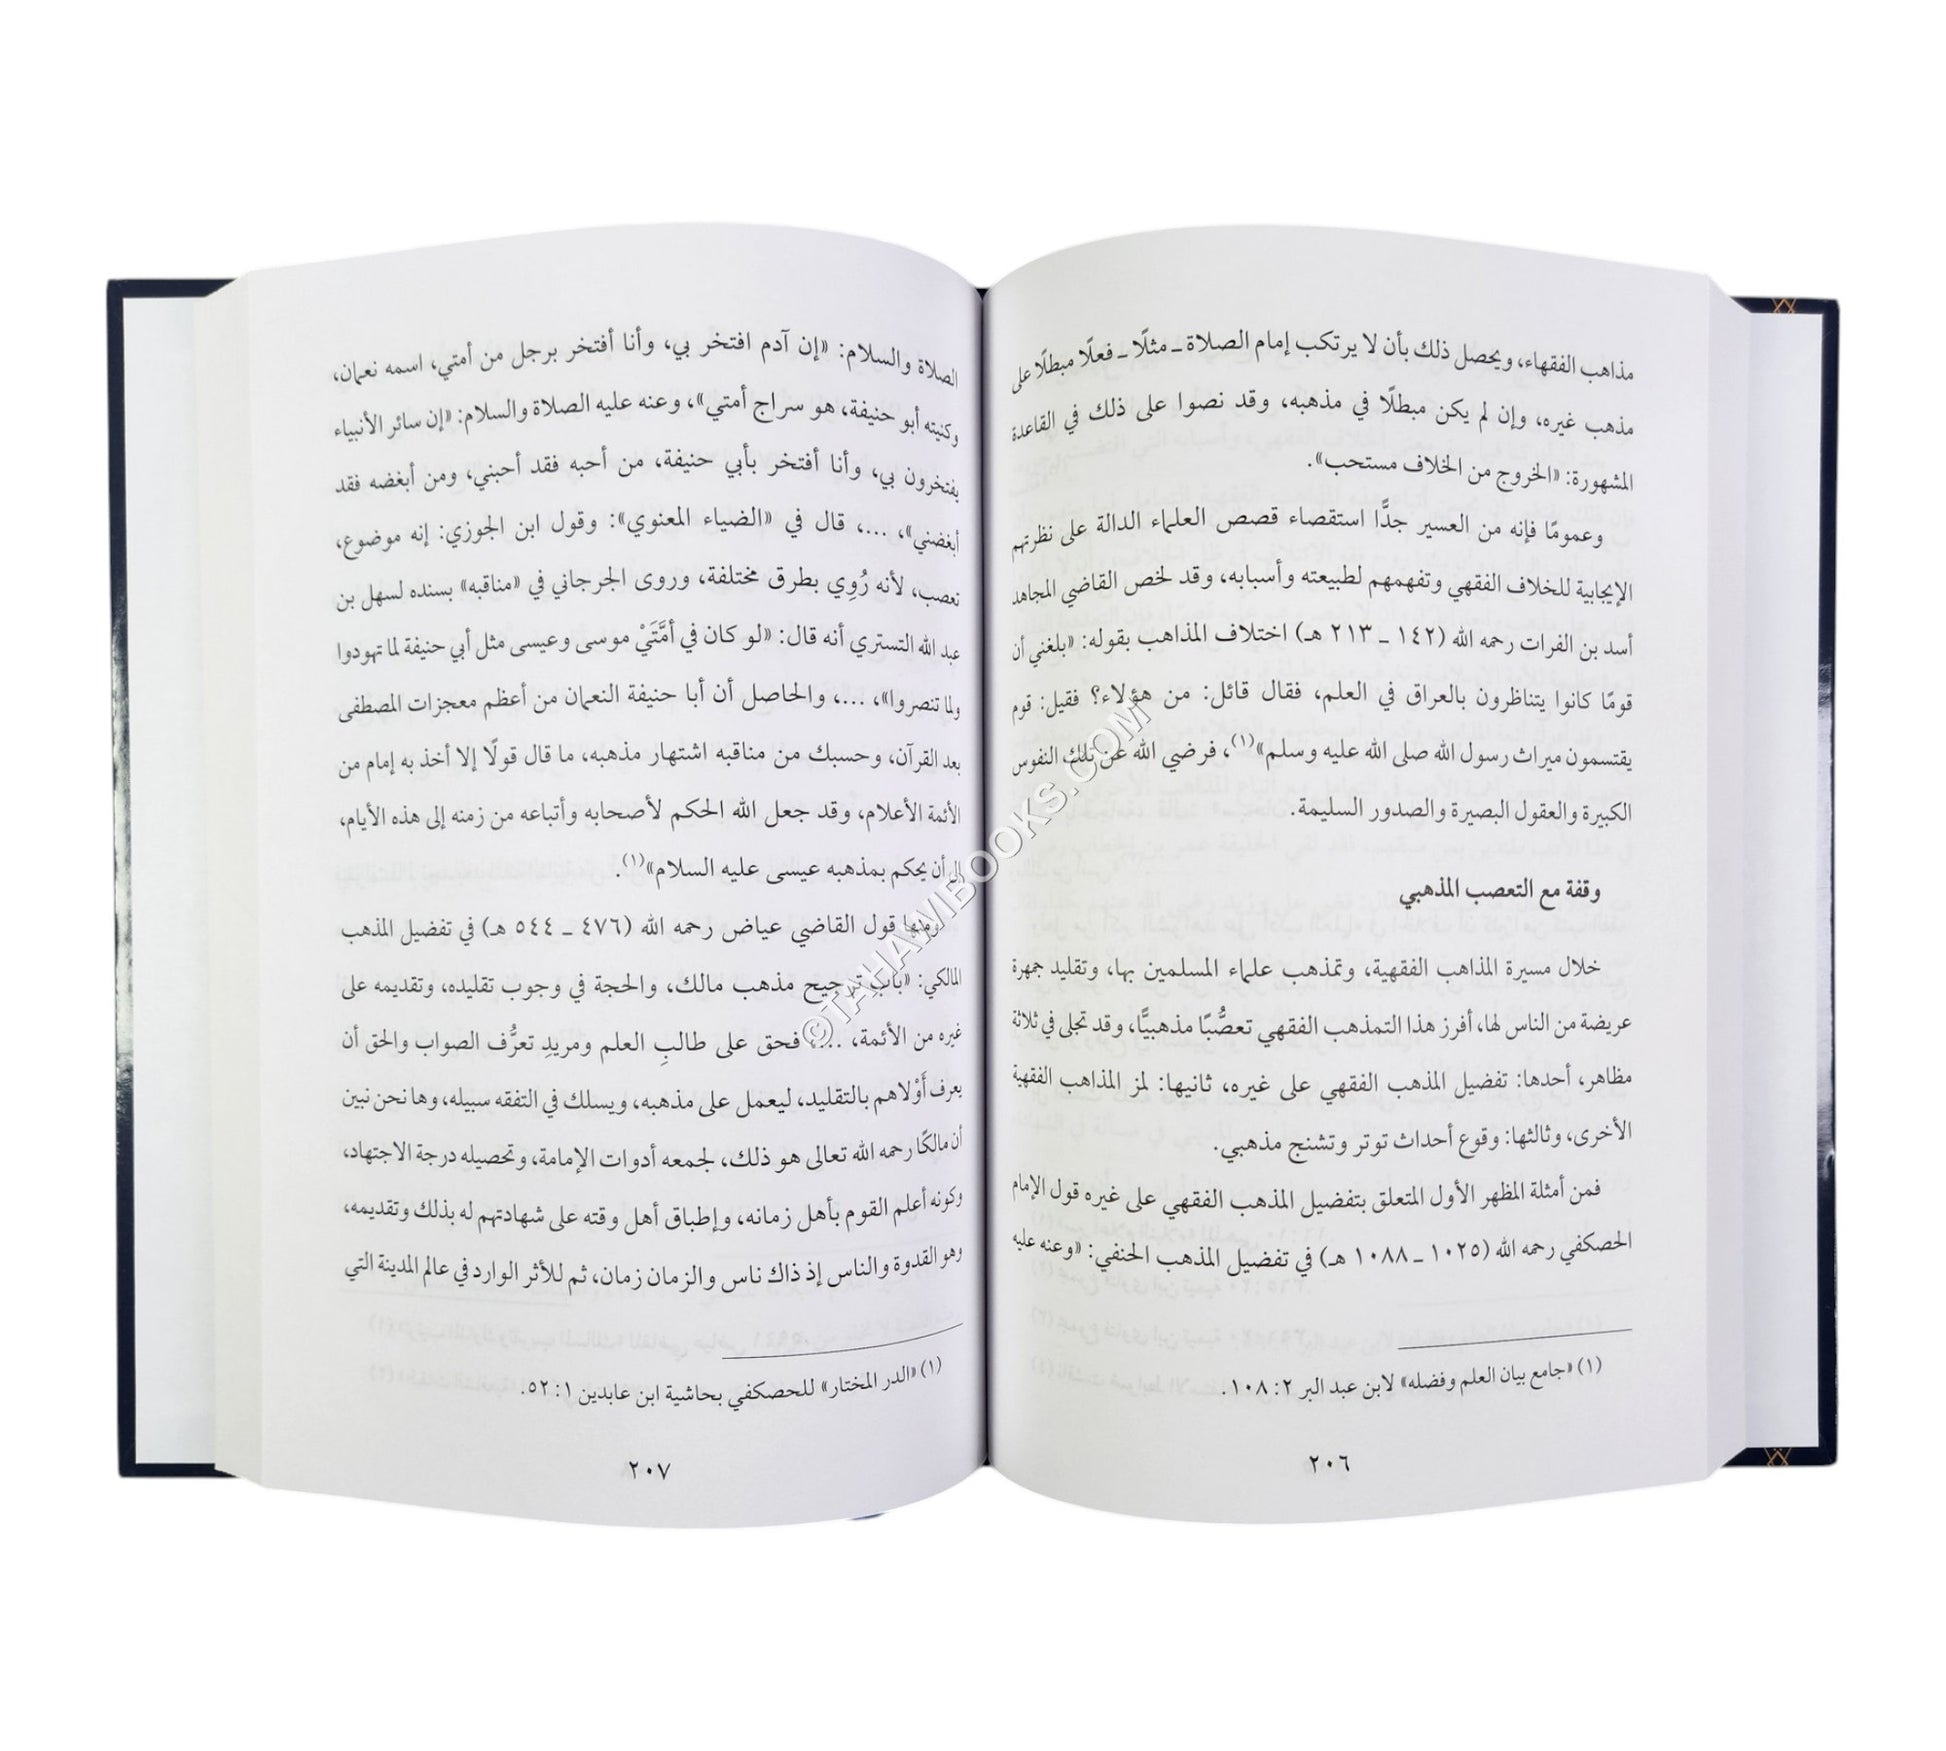 مذاهب الفقهاء، ويحصل ذلك بأن لا يرتكب إمام الصلاة ـ مثلًا ـ فعلًا مبطلًا على
مذهب غيره، وإن لم يكن مبطلًا في مذهبه، وقد نصوا على ذلك في القاعدة
المشهورة: «الخروج من الخلاف مستحب».
وعمومًا فإنه من العسير جدًّا استقصاء قصص العلماء الدالة على نظرتهم
الإيجابية للخلاف الفقهي وتفهمهم لطبيعته وأسبابه، وقد لخص القاضي المجاهد
أسد بن الفرات رحمه الله (١٤٢ ـ ٢١٣ هـ) اختلاف المذاهب بقوله: «بلغني أن
قومًا كانوا يتناظرون بالعراق في العلم، فقال قائل: من هؤلاء؟ فقيل: قوم
يقتسمون ميراث رسول الله صلى الله عليه وسلم»(١)، فرضي الله عن تلك النفوس
الكبيرة والعقول البصيرة والصدور السليمة.
وقفة مع التعصب المذهبي
خلال مسيرة المذاهب الفقهية، وتمذهب علماء المسلمين بها، وتقليد جمهرة
عريضة من الناس لها، أفرز هذا التمذهب الفقهي تعصُّبًا مذهبيًّا، وقد تجلى في ثلاثة
مظاهر، أحدها: تفضيل المذهب الفقهي على غيره، ثانيها: لمز المذاهب الفقهية
الأخرى، وثالثها: وقوع أحداث توتر وتشنج مذهبي.
فمن أمثلة المظهر الأول المتعلق بتفضيل المذهب الفقهي على غيره قول الإمام
الحصكفي رحمه الله (١٠٢٥ ـ ١٠٨٨ هـ) في تفضيل المذهب الحنفي: «وعنه عليه
(١) «جامع بيان العلم وفضله» لابن عبد البر ٢: ١٠٨.
٢٠٦
الصلاة والسلام: «إن آدم افتخر بي، وأنا أفتخر برجل من أمتي، اسمه نعمان،
وكنيته أبو حنيفة، هو سراج أمتي»، وعنه عليه الصلاة والسلام: «إن سائر الأنبياء
يفتخرون بي، وأنا أفتخر بأبي حنيفة، من أحبه فقد أحبني، ومن أبغضه فقد
أبغضني»، ...، قال في «الضياء المعنوي»: وقول ابن الجوزي: إنه موضوع،
تعصب، لأنه رُوِي بطرق مختلفة، وروى الجرجاني في «مناقبه» بسنده لسهل بن
عبد الله التستري أنه قال: «لو كان في أمَّتَيْ موسى وعيسى مثل أبي حنيفة لما تهودوا
ولما تنصروا»، ...، والحاصل أن أبا حنيفة النعمان من أعظم معجزات المصطفى
بعد القرآن، وحسبك من مناقبه اشتهار مذهبه، ما قال قولًا إلا أخذ به إمام من
الأئمة الأعلام، وقد جعل الله الحكم لأصحابه وأتباعه من زمنه إلى هذه الأيام،
إلى أن يحكم بمذهبه عيسى عليه السلام»(١).
ومنها قول القاضي عياض رحمه الله (٤٧٦ ـ ٥٤٤ هـ) في تفضيل المذهب
المالكي: «باب ترجيح مذهب مالك، والحجة في وجوب تقليده، وتقديمه على
غيره من الأئمة، ...، فحق على طالبِ العلم ومريدِ تعرُّف الصواب والحق أن
يعرف أَوْلاهم بالتقليد، ليعمل على مذهبه، ويسلك في التفقه سبيله، وها نحن نبين
أن مالكًا رحمه الله تعالى هو ذلك، لجمعه أدوات الإمامة، وتحصيله درجة الاجتهاد،
وكونه أعلم القوم بأهل زمانه، وإطباق أهل وقته على شهادتهم له بذلك وتقديمه،
وهو القدوة والناس إذ ذاك ناس والزمان زمان، ثم للأثر الوارد في عالم المدينة التي
(١) «الدر المختار» للحصكفي بحاشية ابن عابدين ١: ٥٢.
٢٠٧
©TAHAWIBOOKS.COM